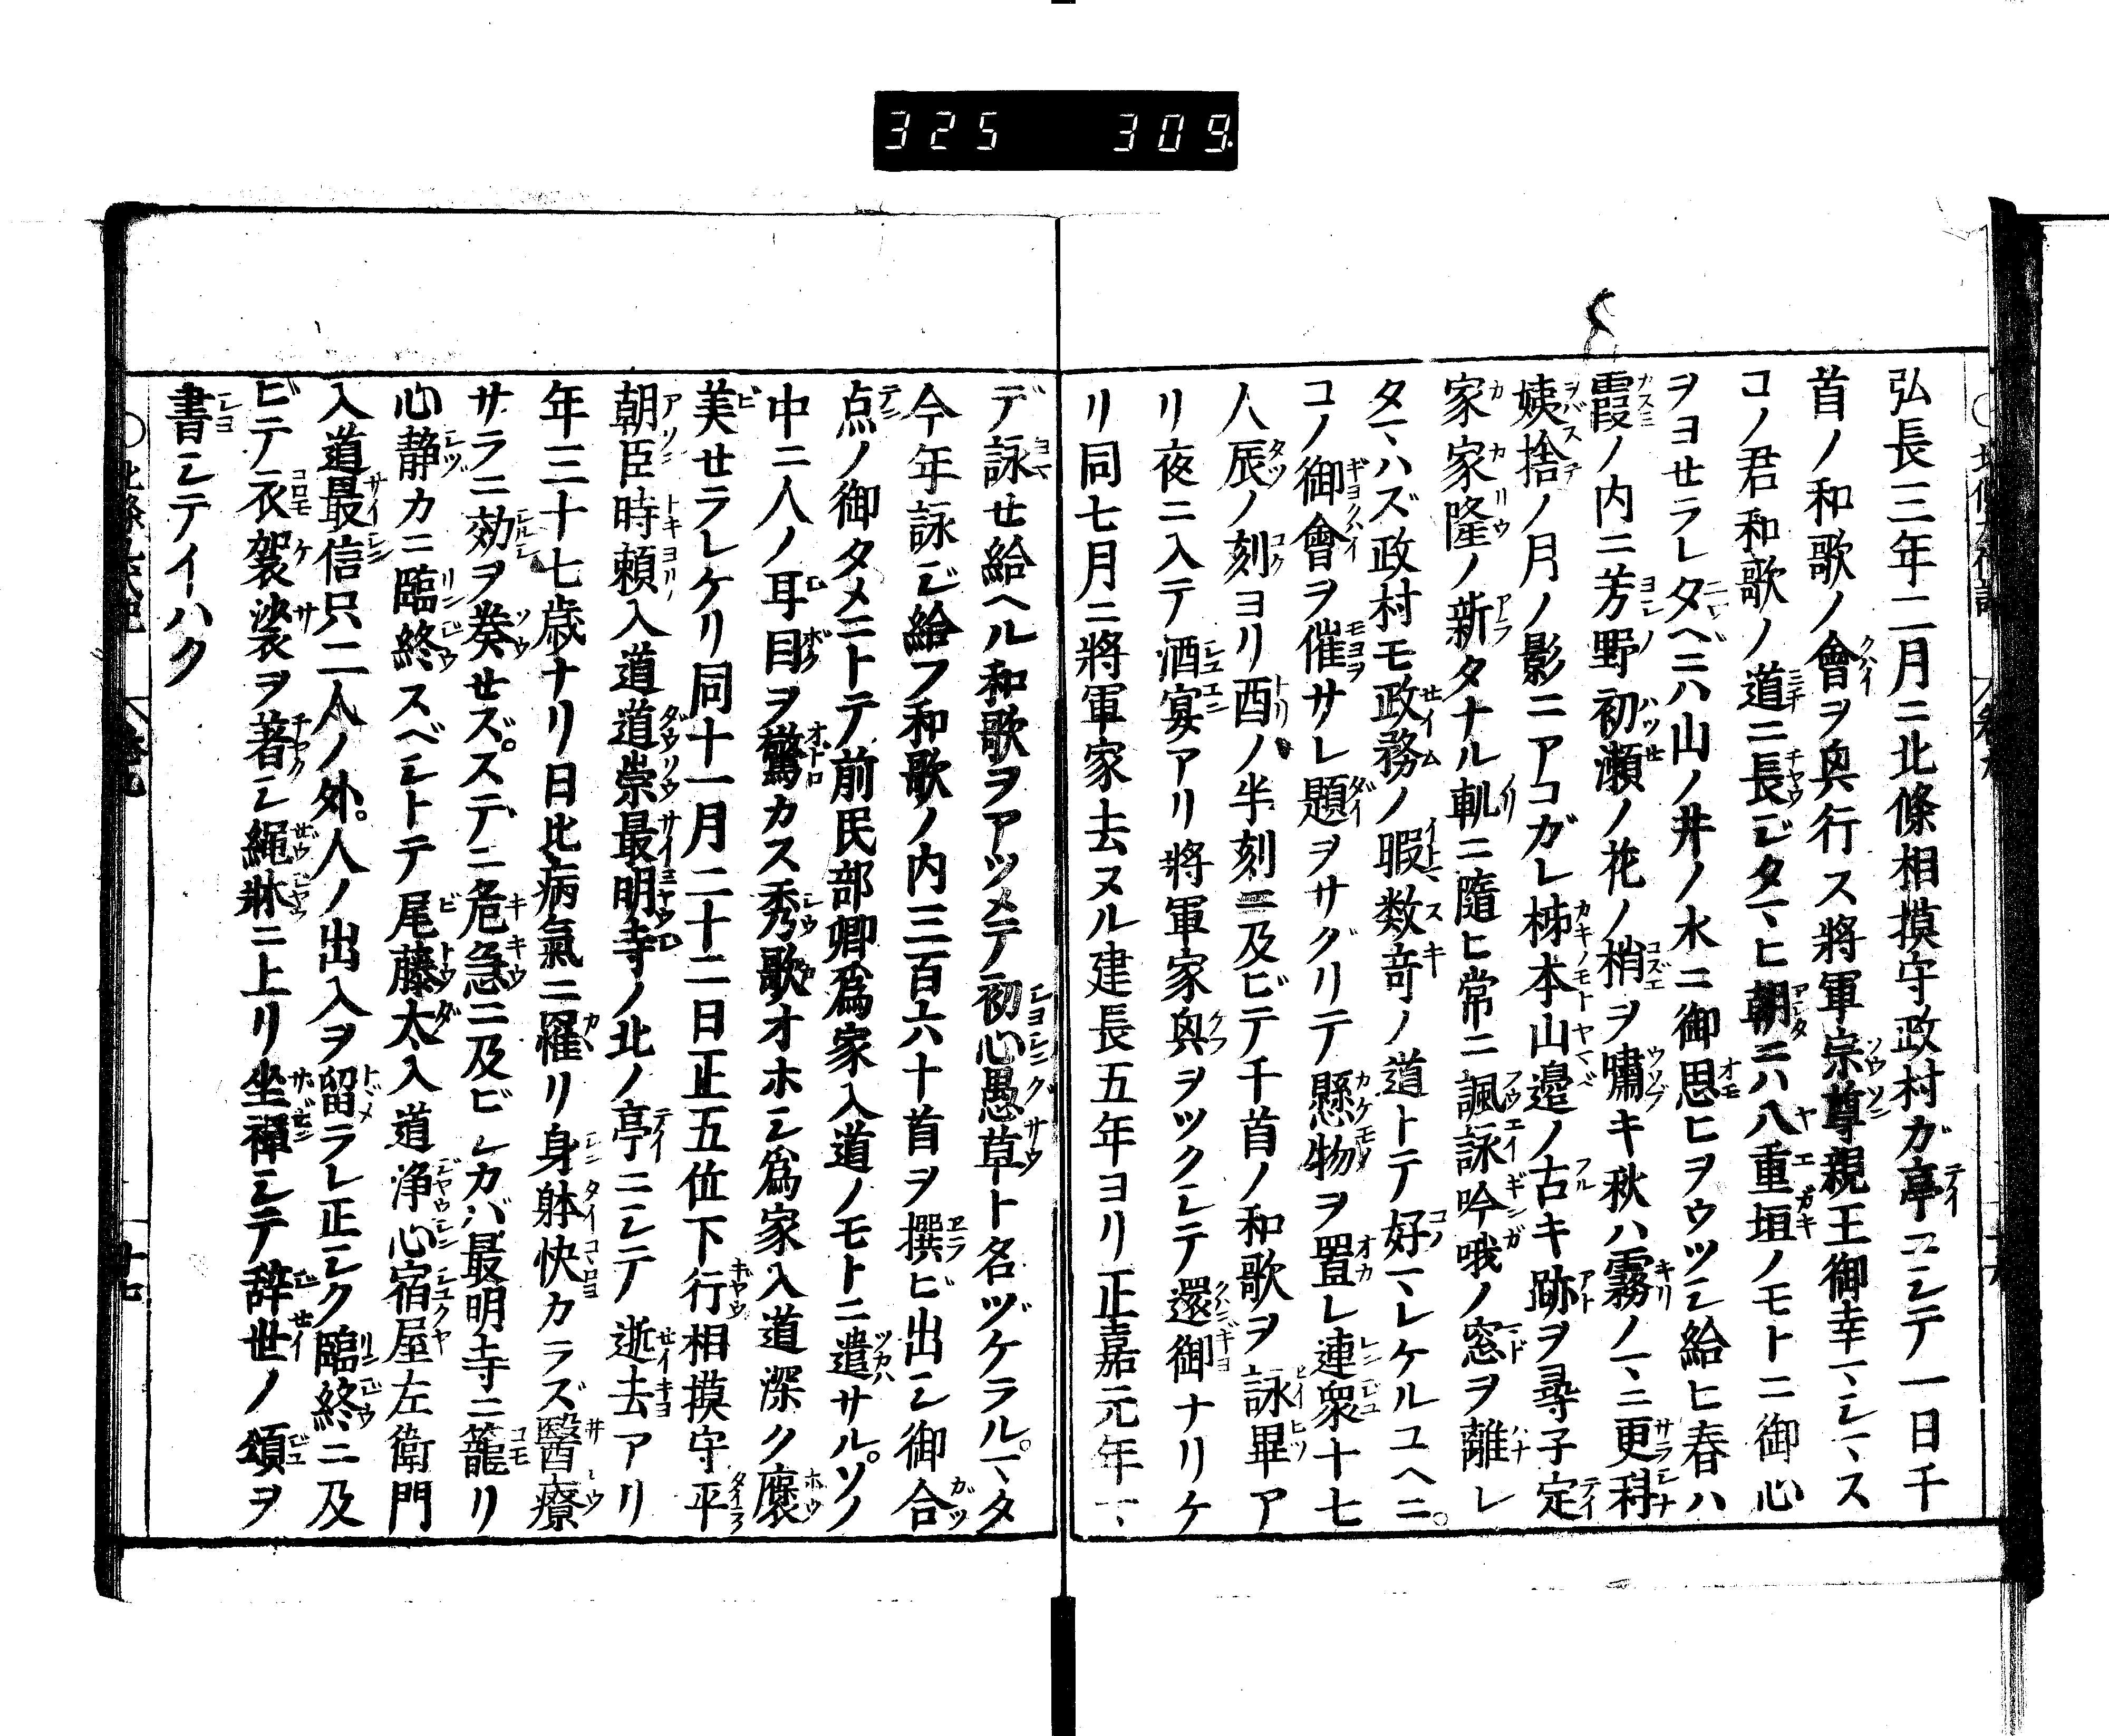 325 309
弘長三年二月ニ北條相摸守政村ガ亭ニシテ一日千
首ノ和歌ノ會ヲ興行ス將軍宗尊親王御幸マシマス
コノ君和歌ノ道ニ長ジタマヒ朝ニハ八重垣ノモトニ御心
ヲヨセラレタベニハ山ノ井ノ水ニ御思ヒヲウツシ給ヒ春ハ
霞ノ内ニ芳野初瀬ノ花ノ梢ヲ嘯キ秋ハ霧ノマニ更科
姨捨ノ月ノ影ニアコガレ柹本山邉ノ古キ跡ヲ尋子定
家家隆ノ新タナル軌ニ隨ヒ常ニ諷詠吟哦ノ窓ヲ離レ
タマハズ政村モ政務ノ暇数竒ノ道トテ好マレケルユヘニ。
コノ御會ヲ催サレ題ヲサグリテ懸物ヲ置レ連衆十七
人辰ノ刻ヨリ酉ノ半刻ニ及ビテ千首ノ和歌ヲ詠畢ア
リ夜ニ入テ酒宴アリ將軍家興ヲツクシテ還御ナリケ
リ同七月ニ將軍家去ヌル建長五年ヨリ正嘉元年マ
デ詠セ給ヘル和歌ヲアツメテ初心愚草ト名ヅケラル。マタ
今年詠ジ給フ和歌ノ内三百六十首ヲ撰ビ出シ御合
点ノ御タメニトテ前民部卿爲家入道ノモトニ遣サル。ソノ
中ニ人ノ耳目ヲ驚カス秀歌オホシ爲家入道深ク褒
美セラレケリ同十一月二十二日正五位下行相摸守平
朝臣時頼入道道崇最明寺ノ北ノ亭ニシテ逝去アリ
年三十七歳ナリ日比病氣ニ羅リ身躰快カラズ醫療
サラニ効ヲ奏セズ。ステニ危急ニ及ビシカバ最明寺ニ籠リ
心静カニ臨終スベシトテ尾藤太入道浄心宿屋左衛門
入道最信只二人ノ外。人ノ出入ヲ留ラレ正シク臨終ニ及
ビテ衣袈裟ヲ著シ繩牀ニ上リ坐禪シテ辞世ノ頌ヲ
書シテイハク